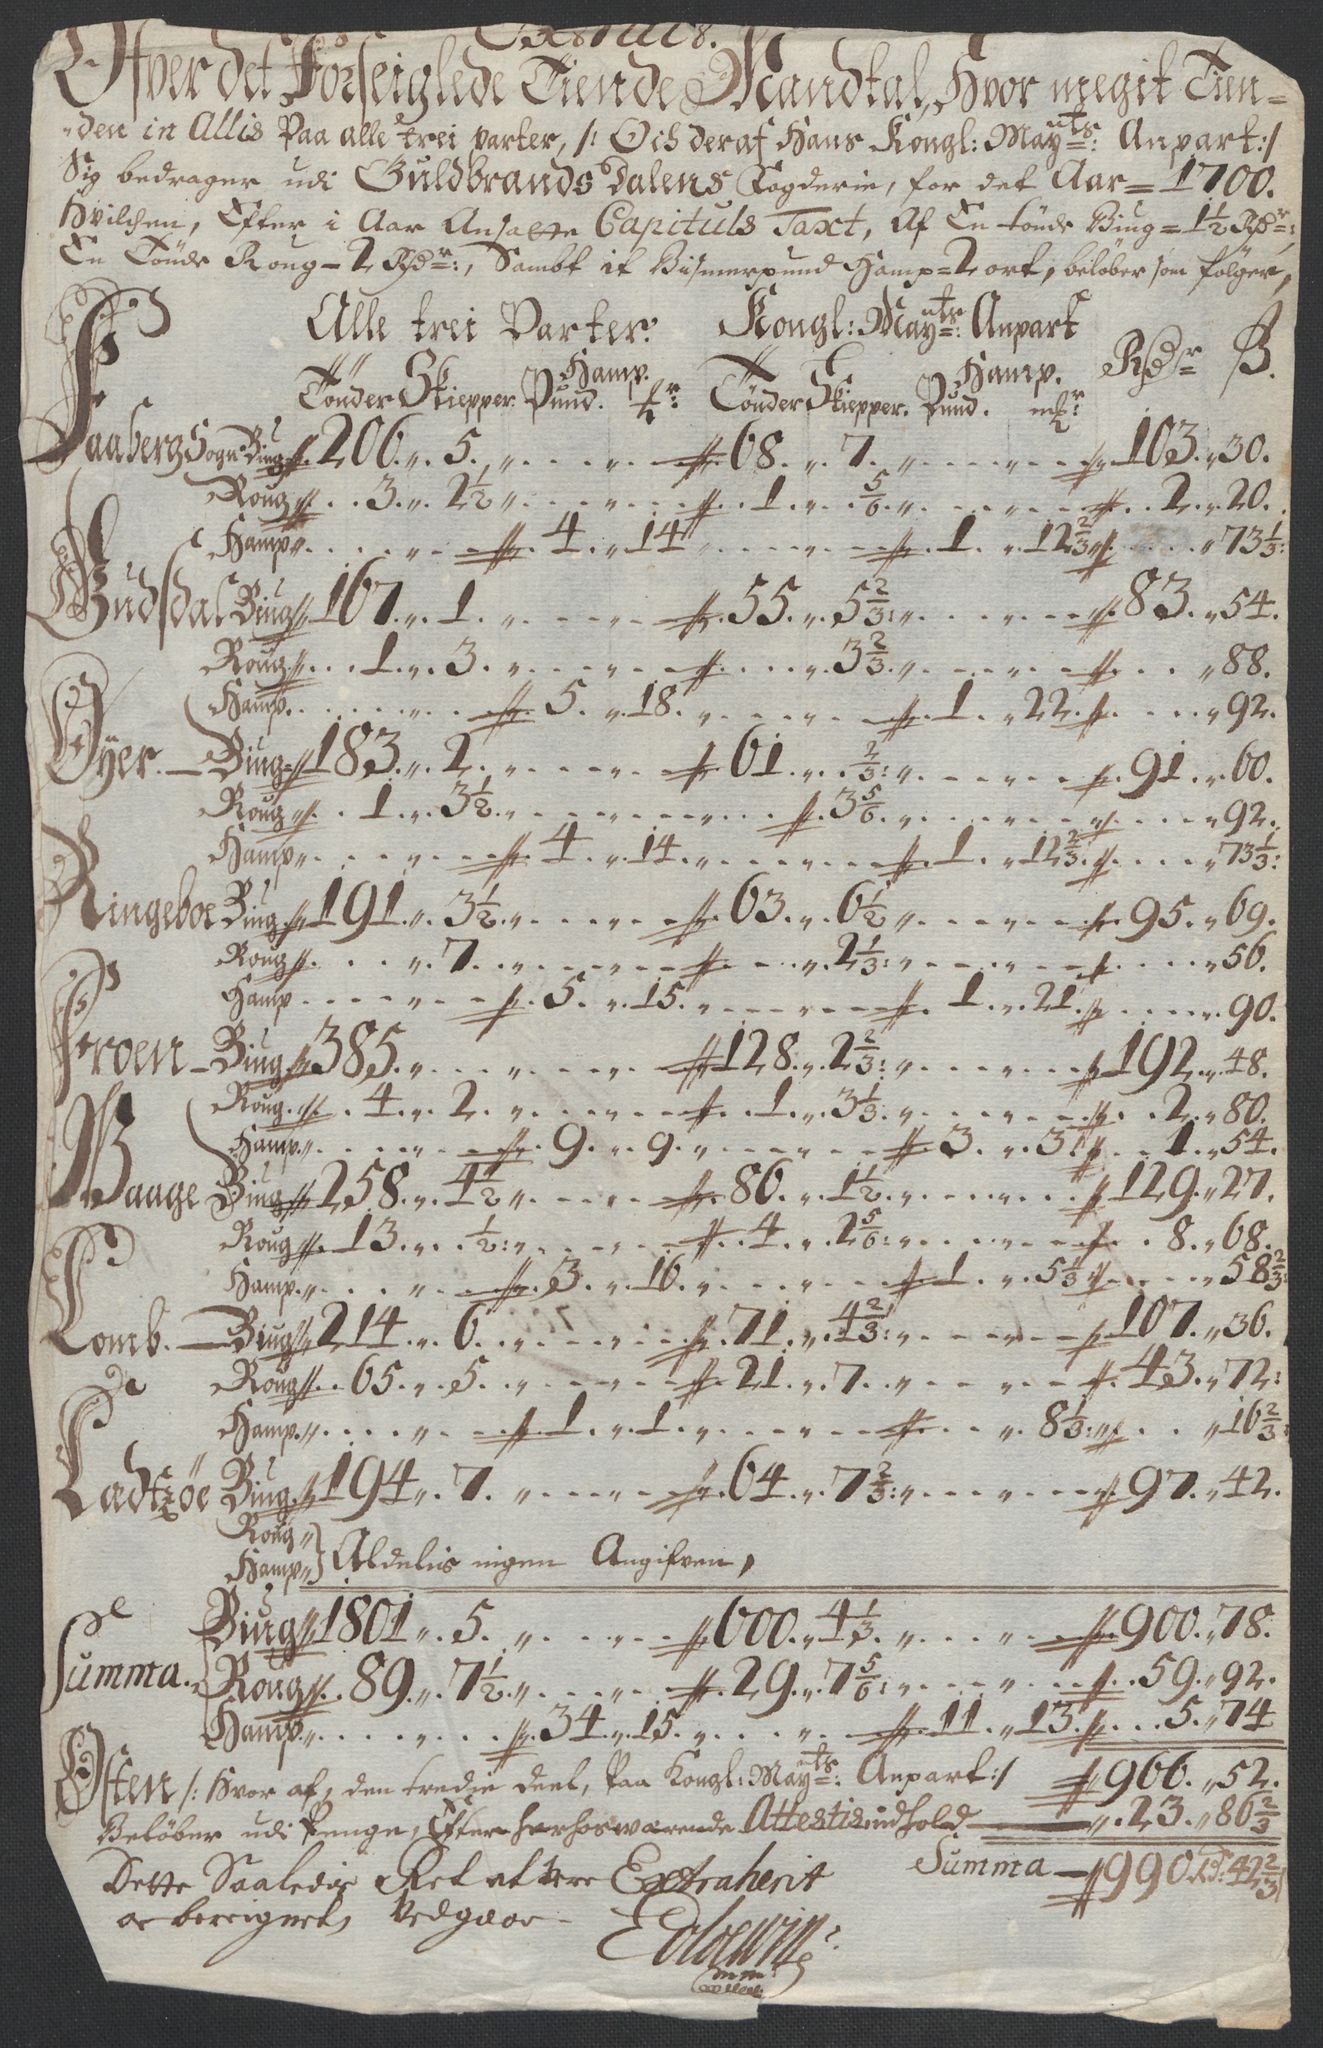 Extract.
Ofver det Forseiglede Tiende Mandtal, Hvor megit Tien=
den in Allis Paa alle trei parter, /: Och deraf Hans Kongl: Mayts: Anpart :/
Sig bedrager udi Guldbrands Dalens Fogderie, for det Aar = 1700.
Hvilchen, Efter i Aar Ansatte Capituls Taxt, Af En tönde Biug = 1½ Rdr:,
En Tönde Roug = 2 Rdr:, Sambt it Bismerpund Hamp = 2 ort, belöber som fölger,
Alle trei Parter. Kongl: Mayts: Anpart
Hamp. Hamp. Rdr ß.
Tönder Skiepper Pund. mkr: Tönder Skiepper. Pund. mkr
Faaberg Sogn Biug 206. 5. 68. 7. 103. 30.
Roug 3. 2½ 1. 5/6 2. 20.
Hamp 4. 14 1. 12 2/3 73 1/3:
Gudsdal Biug 167. 1. 55. 5 2/3: 83. 54.
Roug 1. 3. 3 2/3 88.
Hamp. 5. 18. 1. 22. 92.
Öyer. Biug 183. 2. 61. 2/3: 91. 60.
Roug 1. 3½ 3 5/6 92.
Hamp 4. 14. 1. 12 2/3 73 1/3:
Ringeboe Biug 191. 3½ 63. 6½ 95. 69.
Roug 7. 2 1/3: 56.
Hamp 5. 15. 1. 21. 90.
Froen Biug 385. 128. 2 2/3: 192. 48.
Roug 4. 2. 1. 3 1/3 2. 80.
Hamp. 9. 9. 3. 3. 1. 54.
Waage Biug 258. 4½ 86. 1½ 129. 27.
Roug 13. ½: 4. 2 5/6: 8. 68.
Hamp. 3. 16. 1. 5 1/3 58 2/3:
Lomb. Biug 214. 6. 71. 4 2/3: 107. 36.
Roug 65. 5. 21. 7. 43. 72:
Hamp. 1. 1. 8 1/3: 16 2/3:
Biug. 194. 7. 64. 7 2/3: 97. 42.
Roug
Hamp Aldelis ingen Angifven,
Biug 1801. 5. 600. 4 1/3 900. 78.
Summa. Roug 89. 7½ 29. 7 5/6: 59. 92.
Hamp 34. 15. 11. 13. 5. 74
Osten /: Hvor af, den tredie deel, Paa Kongl: Mayts: Anpart :/ 966. 52.
Belöber udi Penge, Efter herhos werende Attestis indhold 23. 86 2/3
Summa 990 Rdr: 42 2/3
Dette Saaledis Ret at vere Extraherit
oc beregnet, Vedgaar